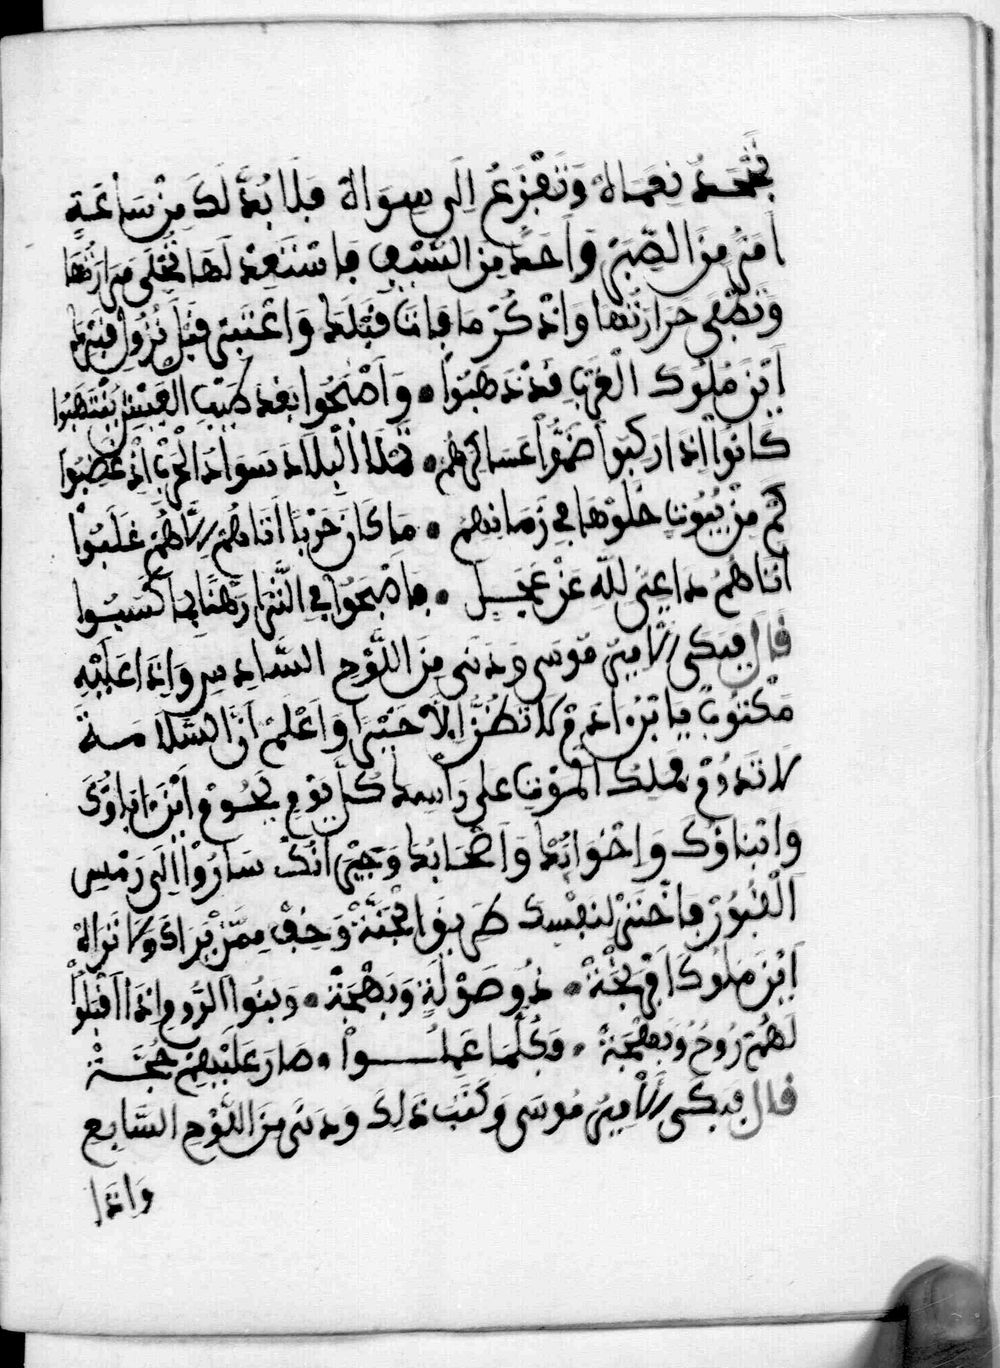 تجحد نعماه وتفزع الى سواه فلا بد لك من ساعة
امر من الصبر واحد من السيف فاستعد لها تحلى مرارتها
وتطفى حرارتها واذكر ما فات قبلك واعتبر قبل نزول قبرك
اين ملوك الغرب قد ذهبوا • واصبحوا بعد طيب العيش ينتهبوا
كانوا اذا ركبوا ضموا عساكرهم • تملا البلاد سواد الحرب اذ غضبوا
كم من بيوت خلوها في زمانهم • ما كان حربا اتاهم الا هم غلبوا
اتاهم داعي لله عن عجل • فاصبحوا في الثرى رهنا بما كسبوا
قال فبكى الامير موسى ودنى من اللوح السادس واذا عليه
مكتوب يا بن ادم لا تظن الا خيرا واعلم ان السلامة
لا تدوم ملك الموت على راسك كل يوم يحوم اين اباؤك
وابناؤك واخوانك واصحابك وجيرانك ساروا الى رمس
القبور فاختر لنفسك طريق الجنة وخف ممن يراك ولا تراه
اين ملوك افرنجة • ذو صولة وبهجة • وبنوا الروم اذا اقبلوا
لهم روح وبهجة • وكلما عملوا • صار عليهم حجة
قال فبكى الامير موسى وكتب ذلك ودنى من اللوح السابع
واذا